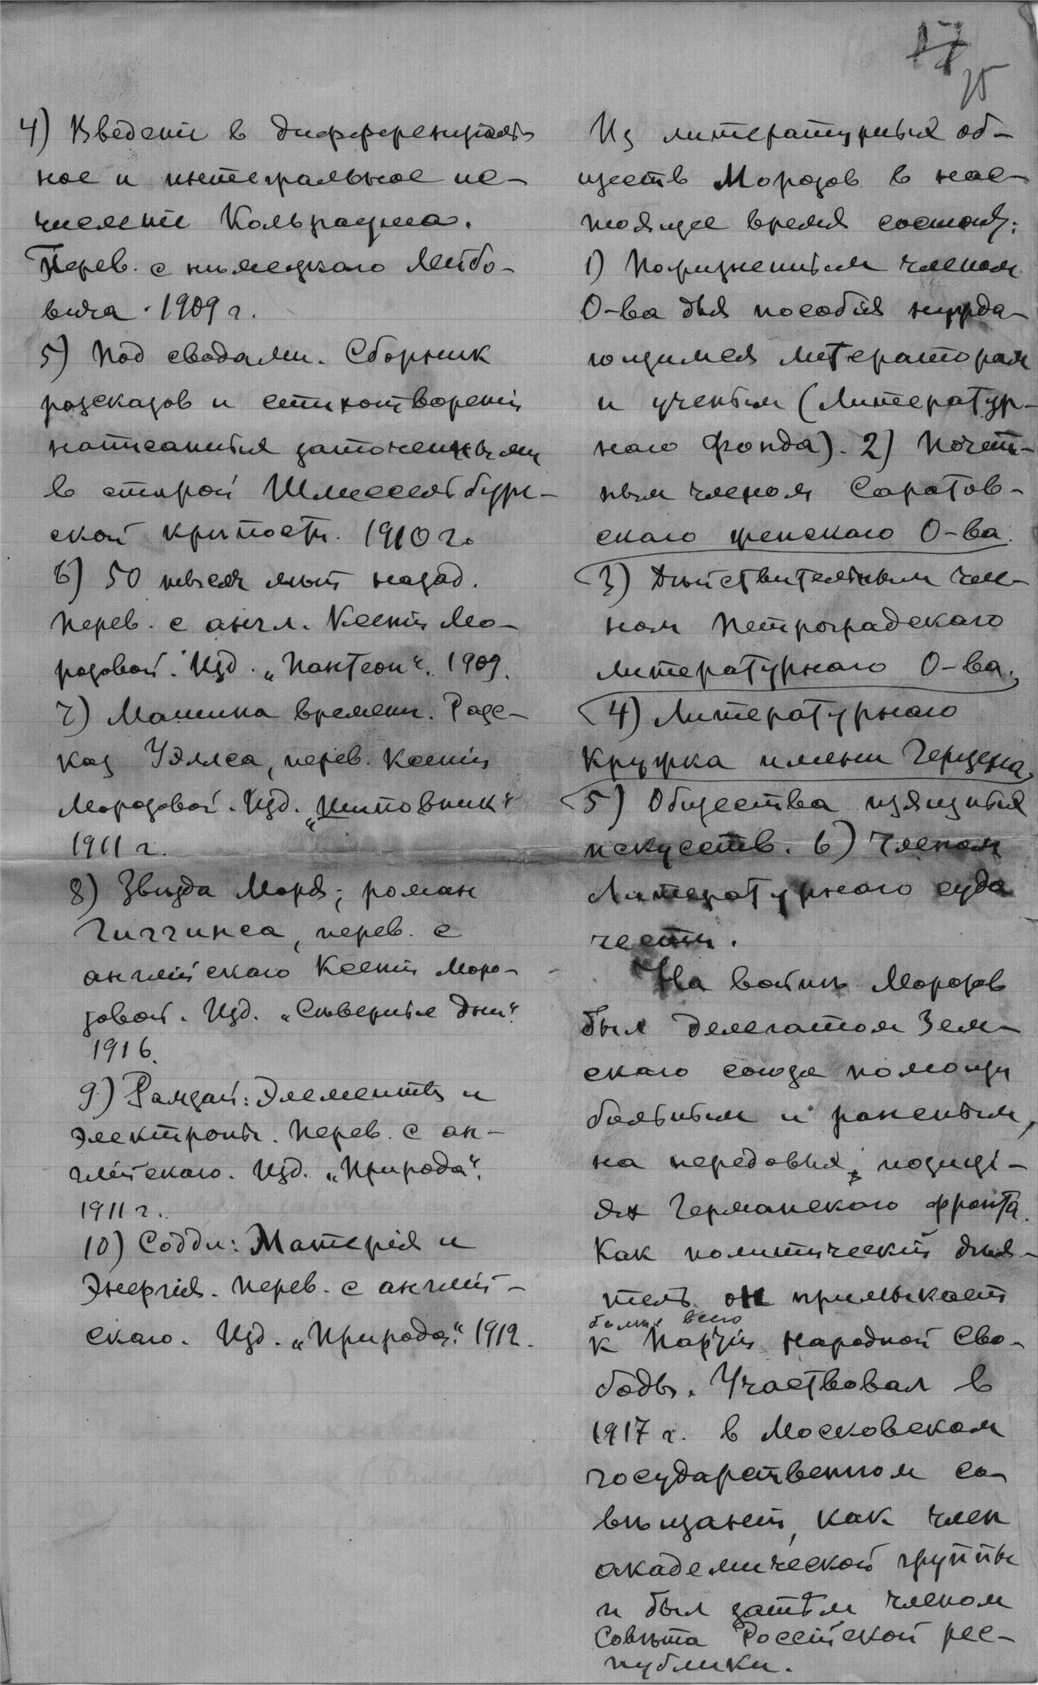 17
25
4) Введеніе в дифференціаль
ное и интегральное ис-
численіе Кольрауша.
Перев. с нѣмецкаго Лейбо-
вича. 1909 г.
5) Под сводами. Сборник
разсказов и стихотвореній
написанных заточенными
в старой Шлиссельбург-
ской крѣпости. 1910 г.
6) 50 тысяч лѣт назад.
Перев. с англ. Ксеніи Мо-
розовой. Изд. „Пантеон“. 1909.
7) Машина времени. Разс-
каз Уэллса, перев. Ксеніи
Морозовой. Изд. „Шиповник“
1911 г.
8) Звѣзда Моря; роман
Гиггинса, перев. с
англійскаго Ксеніи Моро-
зовой. Изд. „Сѣверные дни“.
1916.
9) Рамзай: Элементы и
Электроны. Перев. с ан-
глійскаго. Изд. „Природа“.
1911 г.
10) Содди: Матерія и
Энергія. Перев. с англій-
скаго. Изд. „Природа“. 1912.
Из литературных об-
ществ Морозов в нас-
тоящее время состоит:
1) Пожизненным членом
О-ва для пособія нужда-
ющимся литераторам
и ученым (Литератур-
наго Фонда). 2) Почет-
ным членом Саратов-
скаго женскаго О-ва.
3) Дѣйствительным чле-
ном Петроградскаго
литературнаго О-ва.
4) Литературнаго
Кружка имени Герцена,
5) Общества изящных
искусств. 6) Членом
Литературнаго суда
чести.
На войнѣ Морозов
был делегатом Зем-
скаго союза помощи
больным и раненым,
на передовых позиці-
ях Германскаго фронта.
Как политическій дѣя-
тель он примыкает
больше всего
к Партіи народной Сво-
боды. Участвовал в
1917 г. в Московском
государственном со-
вѣщаніи, как член
академической группы
и был затѣм членом
Совѣта Россійской рес-
публики.